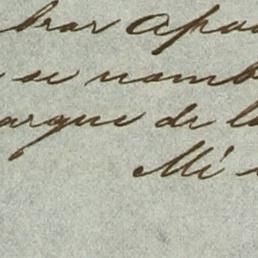 brar apo
se nomb
argue de l
Mi